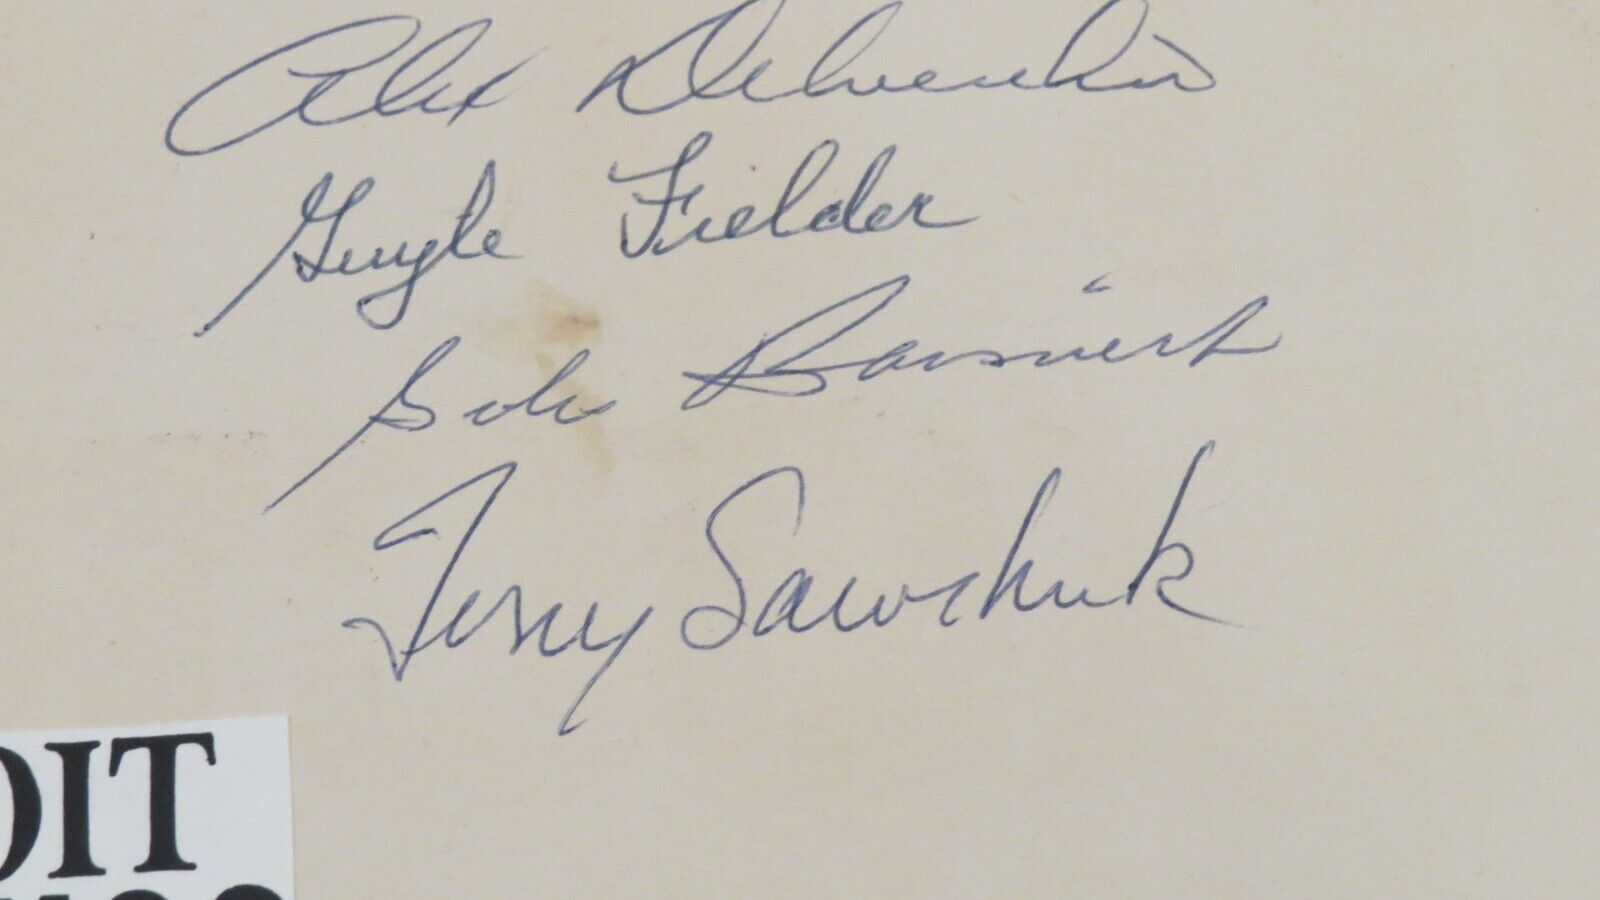 Alex Delvecchio
Guyle Fielder
Boisvert
Terry Sawchuk
OIT